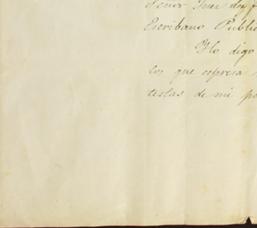 Señor Juez de
Escribano Públic
Ylo digo
los que expresa
teslas de mi po